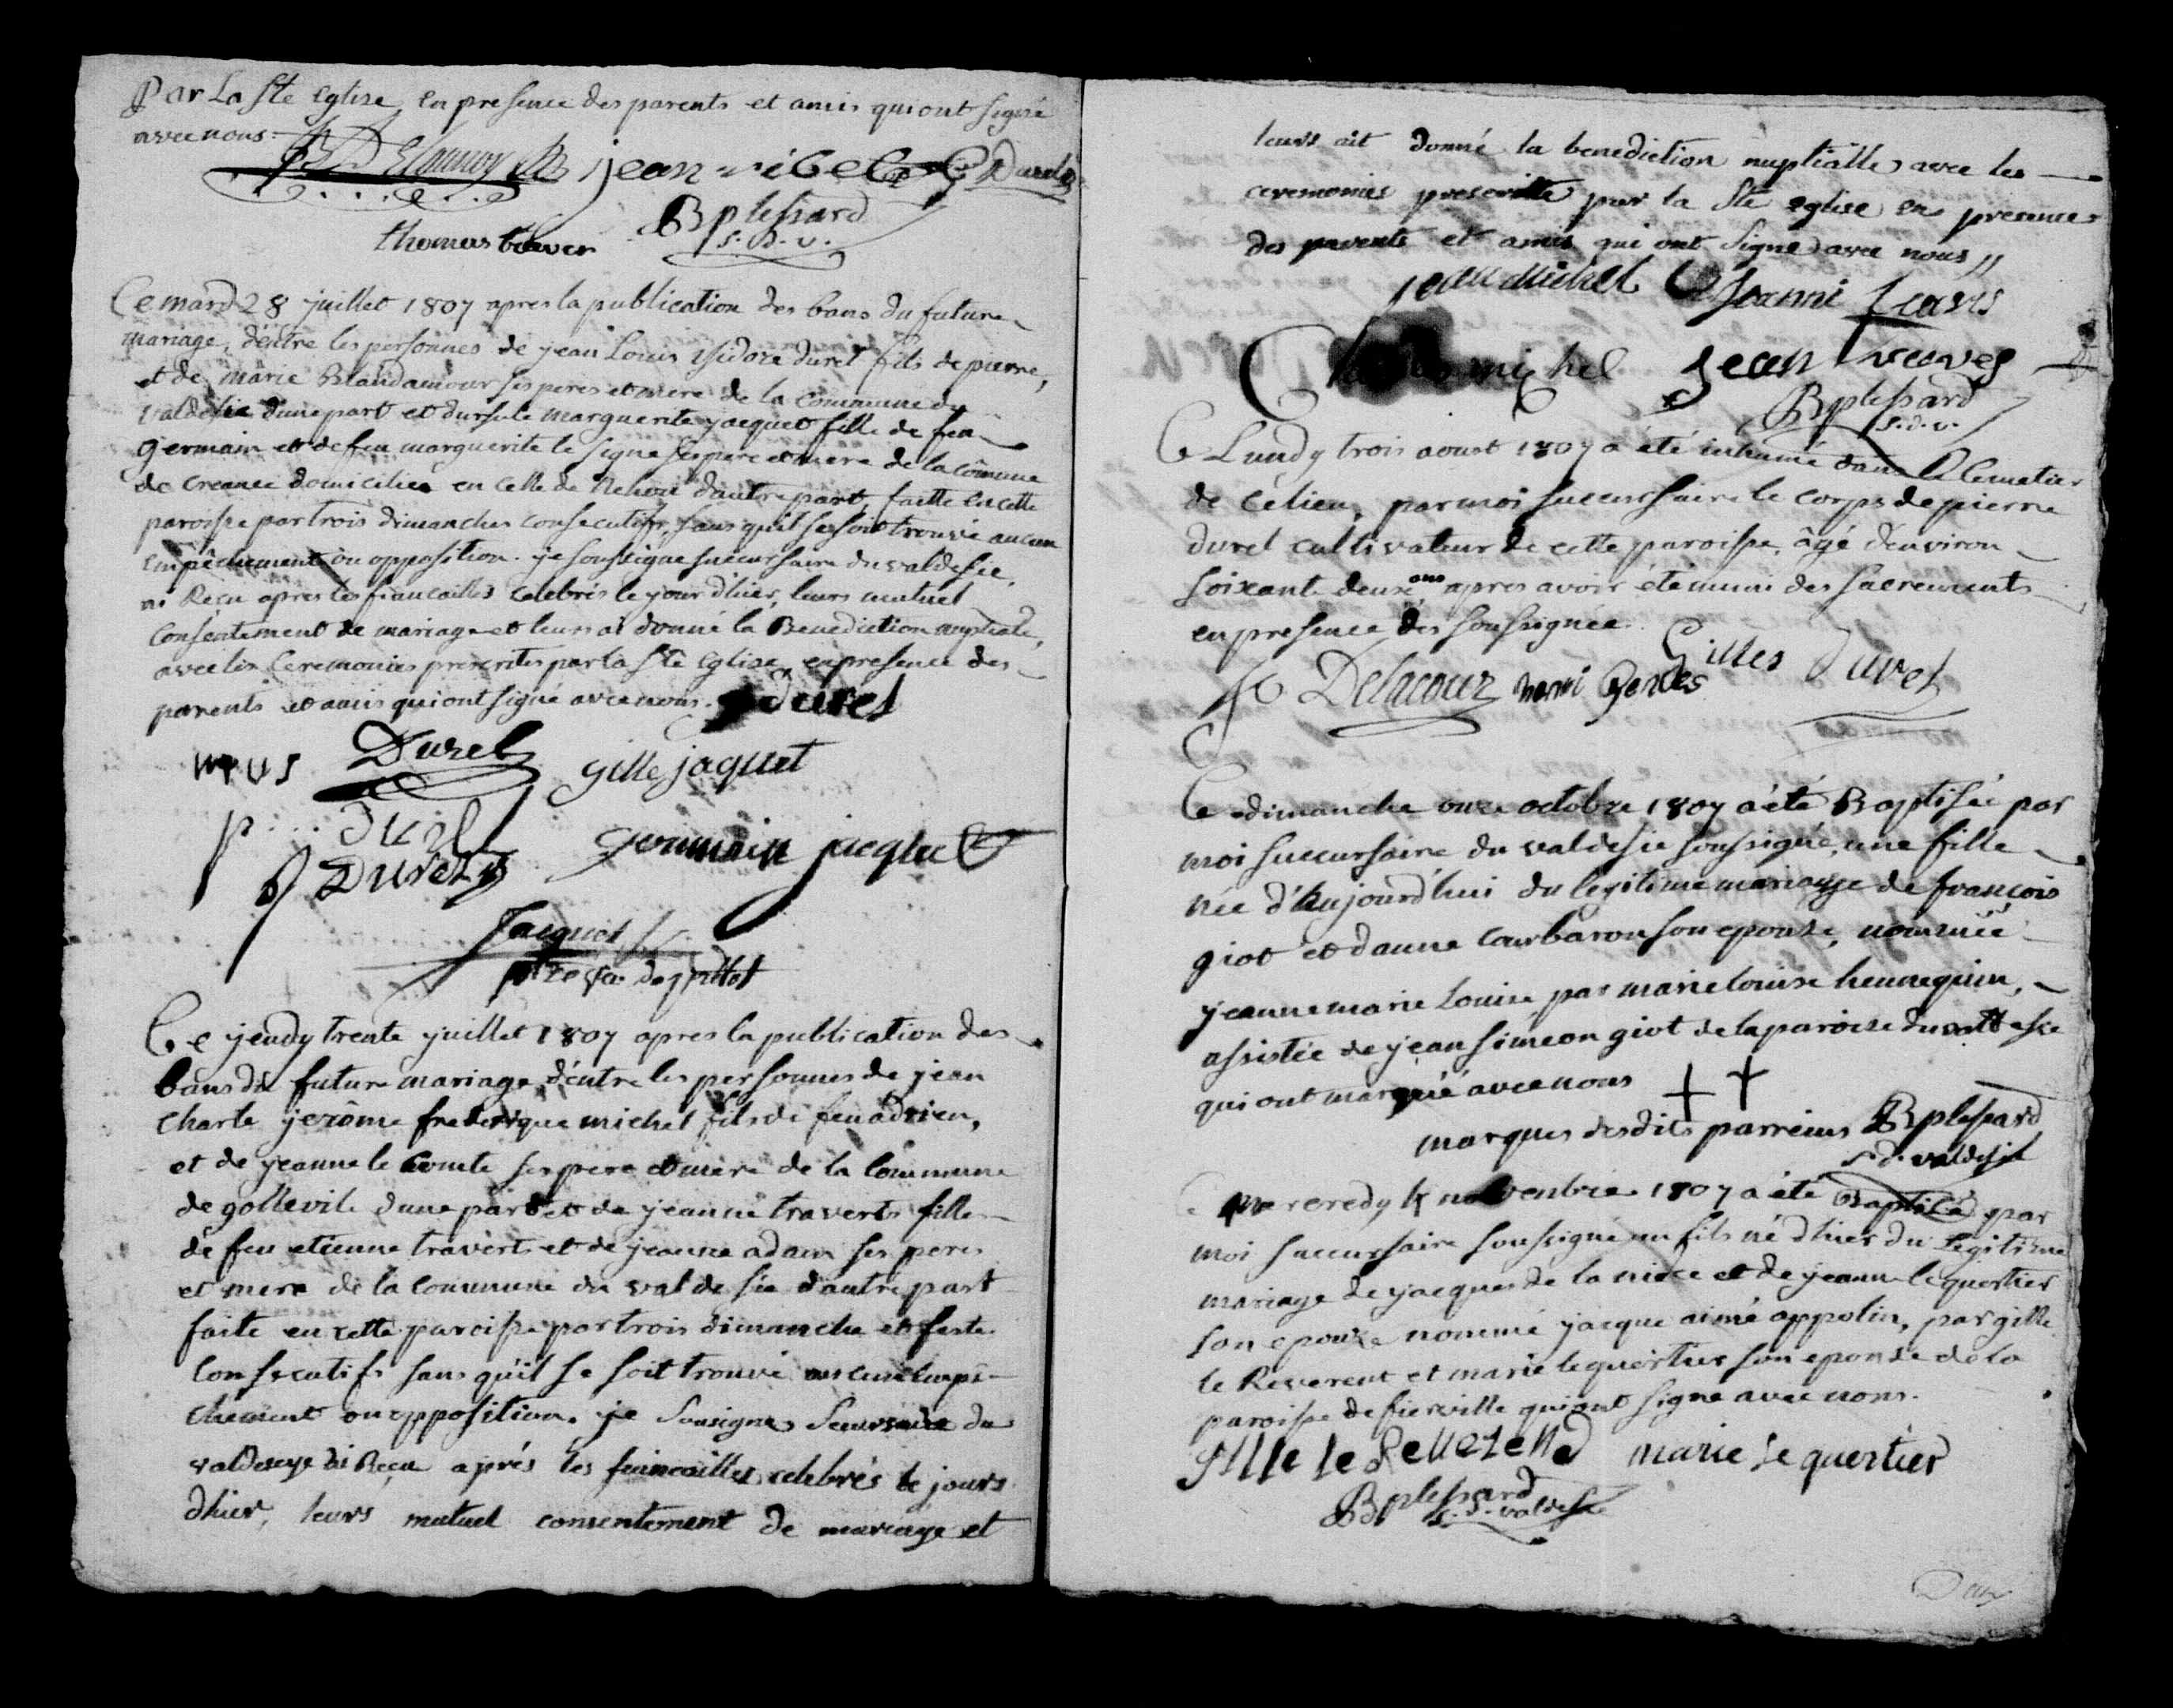 Par la Ste Eglise, en presence des parents et amis qui ont signé
avec nous.
jean
thomas
B plessard
s. d. v.
Ce mardi 28 juillet 1807 apres la publication des bans du future
mariage, d'entre les personnes de jean Louis isidore durel fils de pierre,
et de marie Blandamour ses peres et mere de la commune du
valdesie d'une part et d'ursule marguerite jacquet fille de feu
germain et de feu marguerite le signe ses pere et mere de la cômmune
de creance domicilies en celle de Nehou d'autre part, faitte en cette
paroisse par trois dimanches consecutifs, sans qu'il se soit trouvé aucun
empêchement ou opposition. je soussigne succursaire du valdesie,
ai Reçu apres les fiancailles celebrés le jour d'hier, leurs mutuel
consentement de mariage et leurs ai donné la Benediction nuptiale,
avec les Ceremonies prescrites par la Ste Eglise, en presence des
parents et amis qui ont signé avec nous. durel
Durel gille jaquet
p durel
Durel germain jacquet
Jacquet
Ce jeudy trente juillet 1807 apres la publication des
bans du future mariage d'entre les personnes de jean
charle jerôme frederique michel fils de feu adrien,
et de jeanne le Comte ses pere et mere de la commune
de gollevile d'une part et de jeanne traverts fille
de feu etienne travèrts et de jeanne adam ses peres
et mere de la commune du val de sie d'autre part
faite en cette paroisse par trois dimanche et feste
consecutifs sans qu'il se soit trouvé aucun empê-
chement ou opposition. je sousigne succursaire du
valdeseye ai Reçu aprés les fiancailles celebrés le jours
d'hier, leurs mutuel consentement de mariage et
leurs ait donné la benediction nuptiâlle avec les
ceremonies prescritte par la Ste eglise en presence
des parents et amis qui ont signé avec nous //
jean michel
michel jean
B plessard
s. d. v.
Ce Lundy trois aoust 1807 a été inhumé dans le Cemetier
de ce lieu, par moi succursaire le corps de pierre
durel cultivateur de cette paroisse, âgé d'environ
soixante deuxe ans apres avoir été muni des sacrements
en presence des soussignée.
Delacour henri Gilles Durel
Ce dimanche onze octobre 1807 a été Baptisée par
moi succursaire du valdesie soussigné, une fille
née d'aujourd'hui du legitime mariage de françois
giot et d'anne courbaron son epouse, nommée
jeanne marie Louise, par marie louise hennequin,
assistée de jean simeon giot de la paroisse du valdesie
qui ont marqué avec nous
marques desdits parreins B plessard
s. d. valdesie
Ce mercredy 4 novenbre 1807 a été Baptisé par
moi succursaire soussigne un fils né d'hier du Legitime
mariage de jacques de la niece et de jeanne lequertier
son epouze nommé jacque aimé appolin, par gille
le Reverent et marie lequertier son epouse de la
paroisse de fierville qui ont signe avec nous.
gille le marie le quertier
B plessard
s. d. valdesie